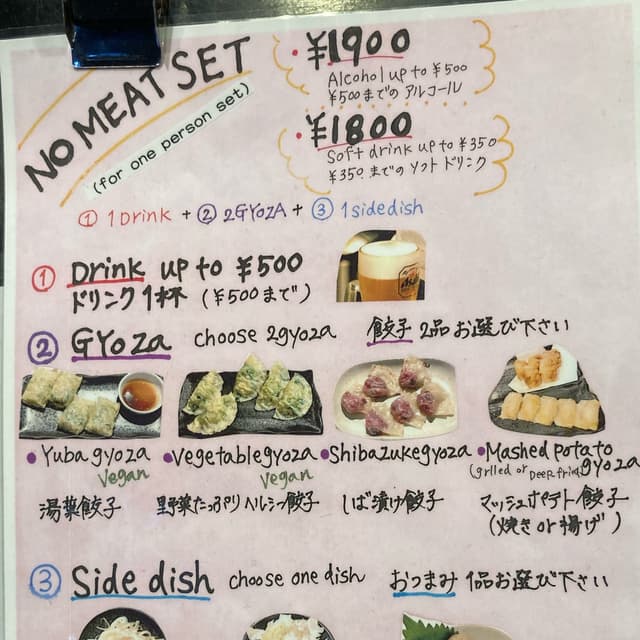 NO MEAT SET
(for one person set)
・¥1900
Alcohol up to ¥500
¥500までのアルコール
・¥1800
Soft drink up to ¥350
¥350までのソフトドリンク
① 1Drink + ② 2GYOZA + ③ 1sidedish
① Drink up to ¥500
ドリンク1杯 (¥500まで)
② GYOZA choose 2gyoza 餃子 2品お選び下さい
•Yuba gyoza •Vegetablegyoza •Shibazukegyoza •Mashed potato
vegan vegan (grlled or Deep fried) gyoza
湯葉餃子 野菜たっぷりヘルシー餃子 しば漬け餃子 マッシュポテト餃子
(焼き or 揚げ)
③ Side dish choose one dish おつまみ 1品お選び下さい